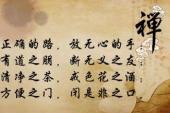 禅
正确的路，放无心的手
有道之朋，断无义之友
清净之茶，戒色花之酒
方便之门，闭是非之口